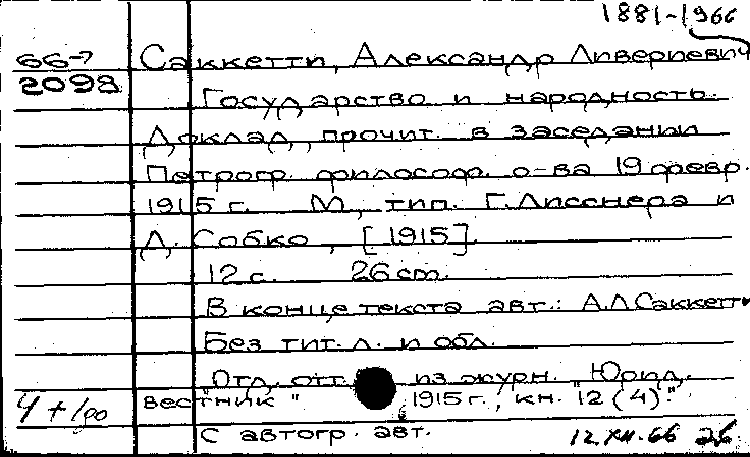 1881-1966
66-7
2098
Саккетти, Александр Ливериевич
Государство и народность.
Доклад, прочит. в заседании
Петрогр. философ. о-ва 19 февр.
1915 г. М., тип. Г. Лисснера и
Д. Собко, [1915].
12 с. 26 cm.
В конце текста авт.: А.Л. Саккетти
Без тит. л. и обл.
"Отд. отт. из журн. "Юрид.
вестник" 1915 г., кн. 12 (4)."
Ч + 1до
С автогр. авт.
12.XII.66